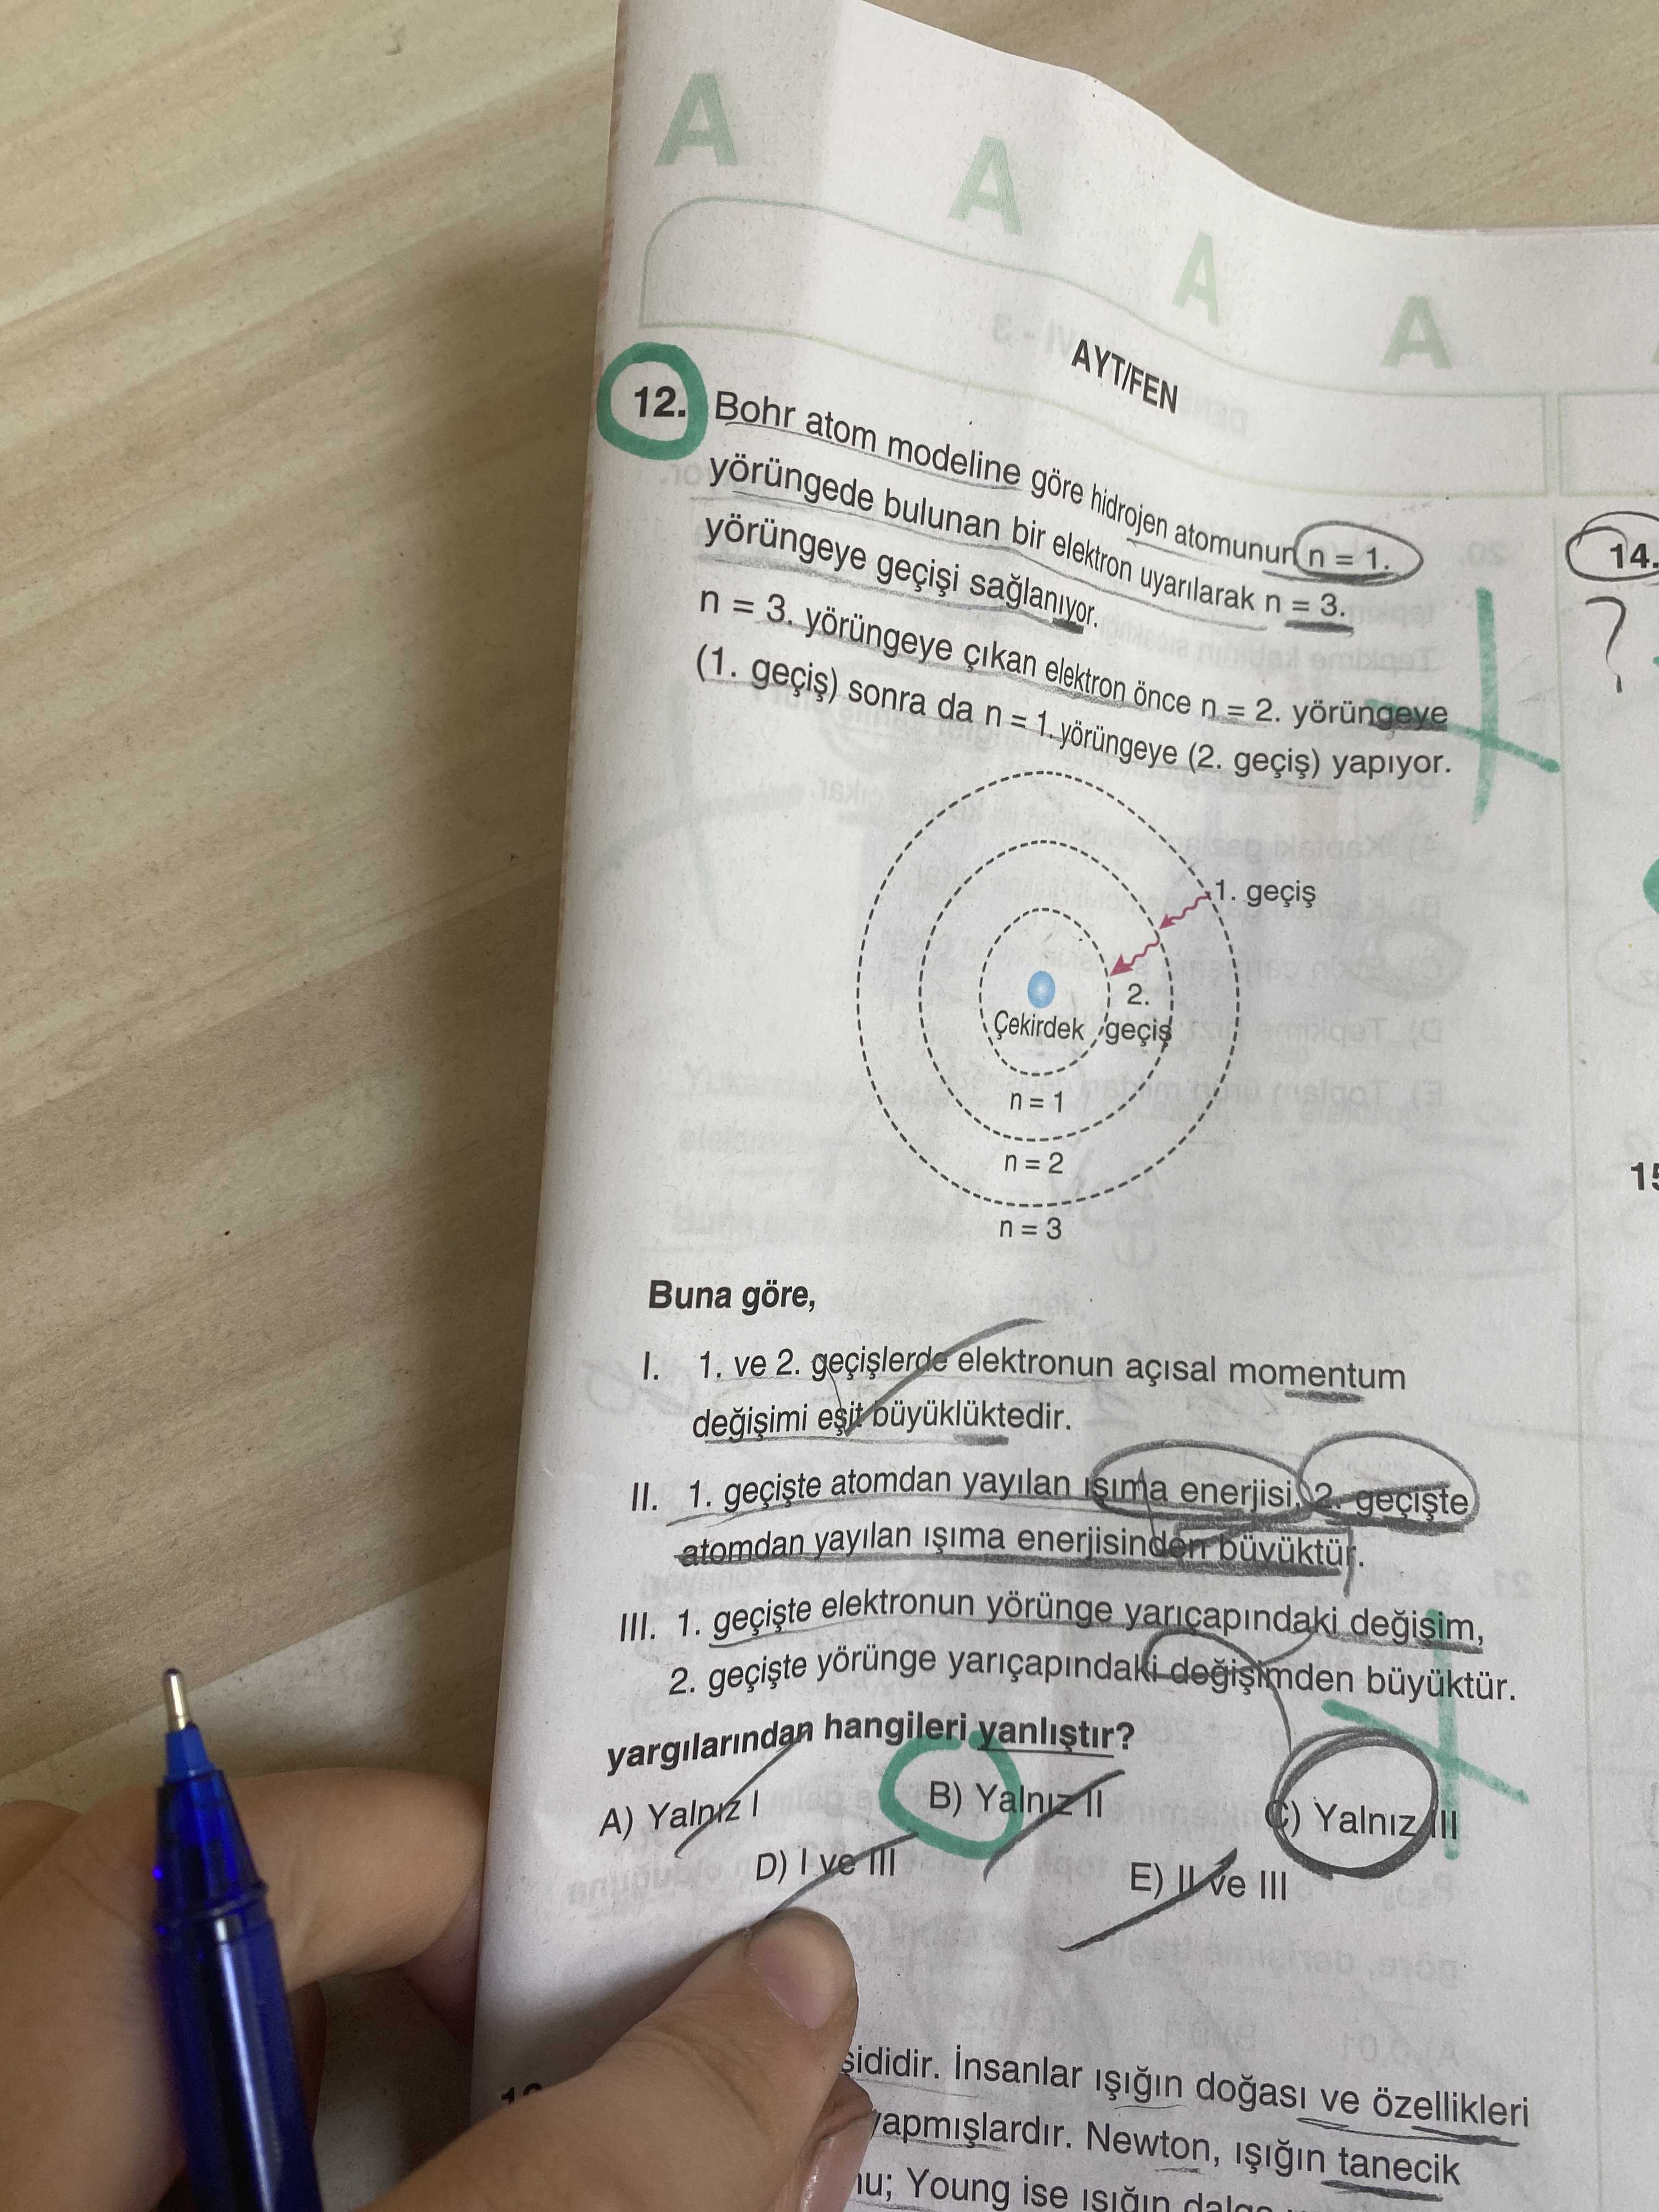 A A A A
AYT/FEN
12. Bohr atom modeline göre hidrojen atomunun n = 1.
yörüngede bulunan bir elektron uyarılarak n = 3.
yörüngeye geçişi sağlanıyor.
n = 3. yörüngeye çıkan elektron önce n = 2. yörüngeye
(1. geçiş) sonra da n = 1. yörüngeye (2. geçiş) yapıyor.
1. geçiş
2.
geçiş
Çekirdek
n = 1
n = 2
n = 3
Buna göre,
I. 1. ve 2. geçişlerde elektronun açısal momentum
değişimi eşit büyüklüktedir.
II. 1. geçişte atomdan yayılan ışıma enerjisi, 2. geçişte
atomdan yayılan ışıma enerjisinden büyüktür.
III. 1. geçişte elektronun yörünge yarıçapındaki değişim,
2. geçişte yörünge yarıçapındaki değişimden büyüktür.
yargılarından hangileri yanlıştır?
A) Yalnız I B) Yalnız II C) Yalnız III
D) I ve III E) II ve III
İnsanlar ışığın doğası ve özellikleri
yapmışlardır. Newton, ışığın tanecik
Young ise ışığın
14.
?